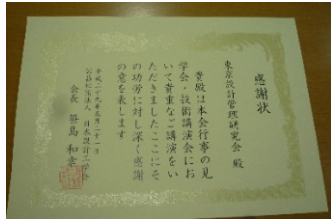 感謝状
東京設計管理研究会 殿
貴殿は本会行事の見
学会・技術講演会にお
いて貴重なご講演をい
ただきましたここにそ
の功労に対し深く感謝
の意を表します
平成二十九年五月二十一日
公益社団法人 日本設計工学会
会長 笹島 和幸